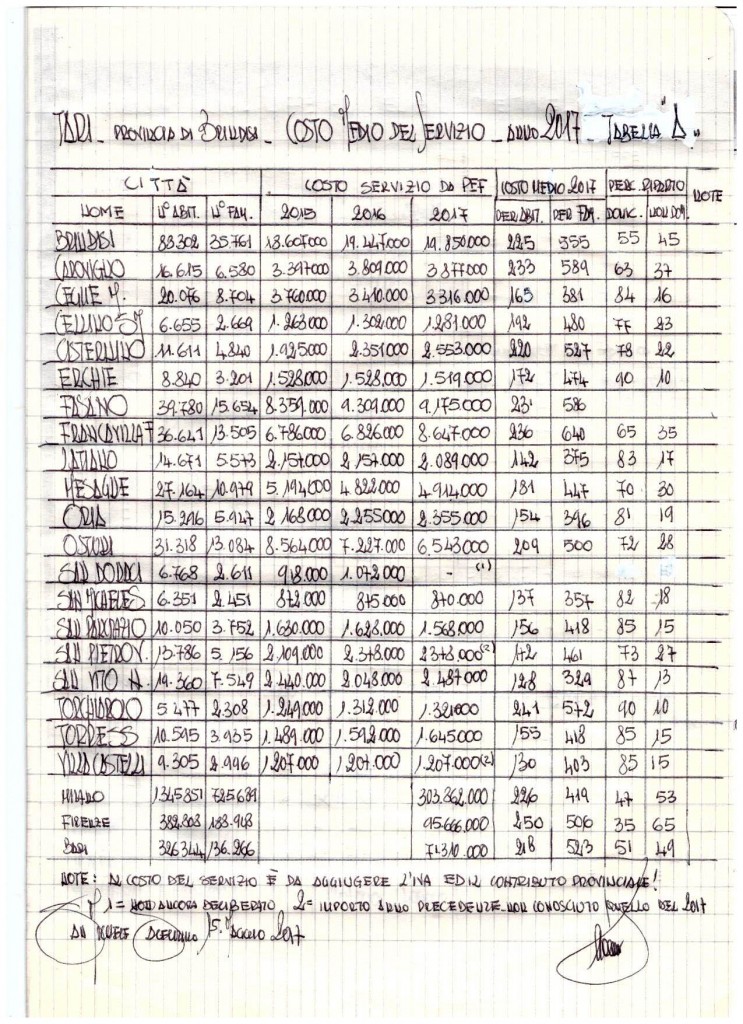 TARI - PROVINCIA DI BRINDISI - COSTO MEDIO DEL SERVIZIO - ANNO 2017 TABELLA "A"
CITTÀ COSTO SERVIZIO DA PEF COSTO MEDIO 2017 PERC. RIPARTO NOTE
NOME N° ABIT. N° FAM. 2015 2016 2017 PER ABIT. PER FAM. DOMIC. NON DOM.
BRINDISI 88.302 35.761 18.607.000 19.447.000 19.850.000 225 555 55 45
CAROVIGNO 16.615 6.580 3.397.000 3.809.000 3.877.000 233 589 63 37
CEGLIE M. 20.076 8.704 3.760.000 3.410.000 3.316.000 165 381 84 16
CELLINO S M 6.655 2.669 1.263.000 1.302.000 1.281.000 192 480 77 23
CISTERNINO 11.611 4.840 1.925.000 2.351.000 2.553.000 220 527 78 22
ERCHIE 8.840 3.201 1.528.000 1.528.000 1.519.000 172 474 90 10
FASANO 39.780 15.654 8.359.000 9.309.000 9.175.000 231 586
FRANCAVILLA F 36.641 13.505 6.786.000 6.826.000 8.647.000 236 640 65 35
LATIANO 14.671 5.573 2.157.000 2.157.000 2.089.000 142 375 83 17
MESAGNE 27.164 10.979 5.194.000 4.822.000 4.914.000 181 447 70 30
ORIA 15.296 5.947 2.168.000 2.255.000 2.355.000 154 396 81 19
OSTUNI 31.318 13.084 8.564.000 7.227.000 6.543.000 209 500 72 28
SAN DONACI 6.768 2.611 918.000 1.072.000 - (1)
SAN MICHELE S 6.351 2.451 872.000 875.000 870.000 137 357 82 18
SAN PANCRAZIO 10.050 3.752 1.630.000 1.628.000 1.568.000 156 418 85 15
SAN PIETRO V. 13.786 5.156 2.109.000 2.378.000 2.378.000 (2) 172 461 73 27
SAN VITO N. 19.360 7.549 2.440.000 2.048.000 2.487.000 128 329 87 13
TORCHIAROLO 5.477 2.308 1.249.000 1.312.000 1.321.000 241 572 90 10
TORRE S S 10.595 3.935 1.489.000 1.592.000 1.645.000 155 418 85 15
VILLA CASTELLI 9.305 2.996 1.207.000 1.207.000 1.207.000 (2) 130 403 85 15
MILANO 1.345.851 725.689 303.862.000 226 419 47 53
FIRENZE 382.808 188.948 95.666.000 250 506 35 65
BARI 326.344 136.266 71.310.000 218 523 51 49
NOTE: AL COSTO DEL SERVIZIO È DA AGGIUNGERE L'IVA ED IL CONTRIBUTO PROVINCIALE!
1 = NON ANCORA DELIBERATO 2 = IMPORTO ANNO PRECEDENTE - NON CONOSCIUTO QUELLO DEL 2017
15. 2017